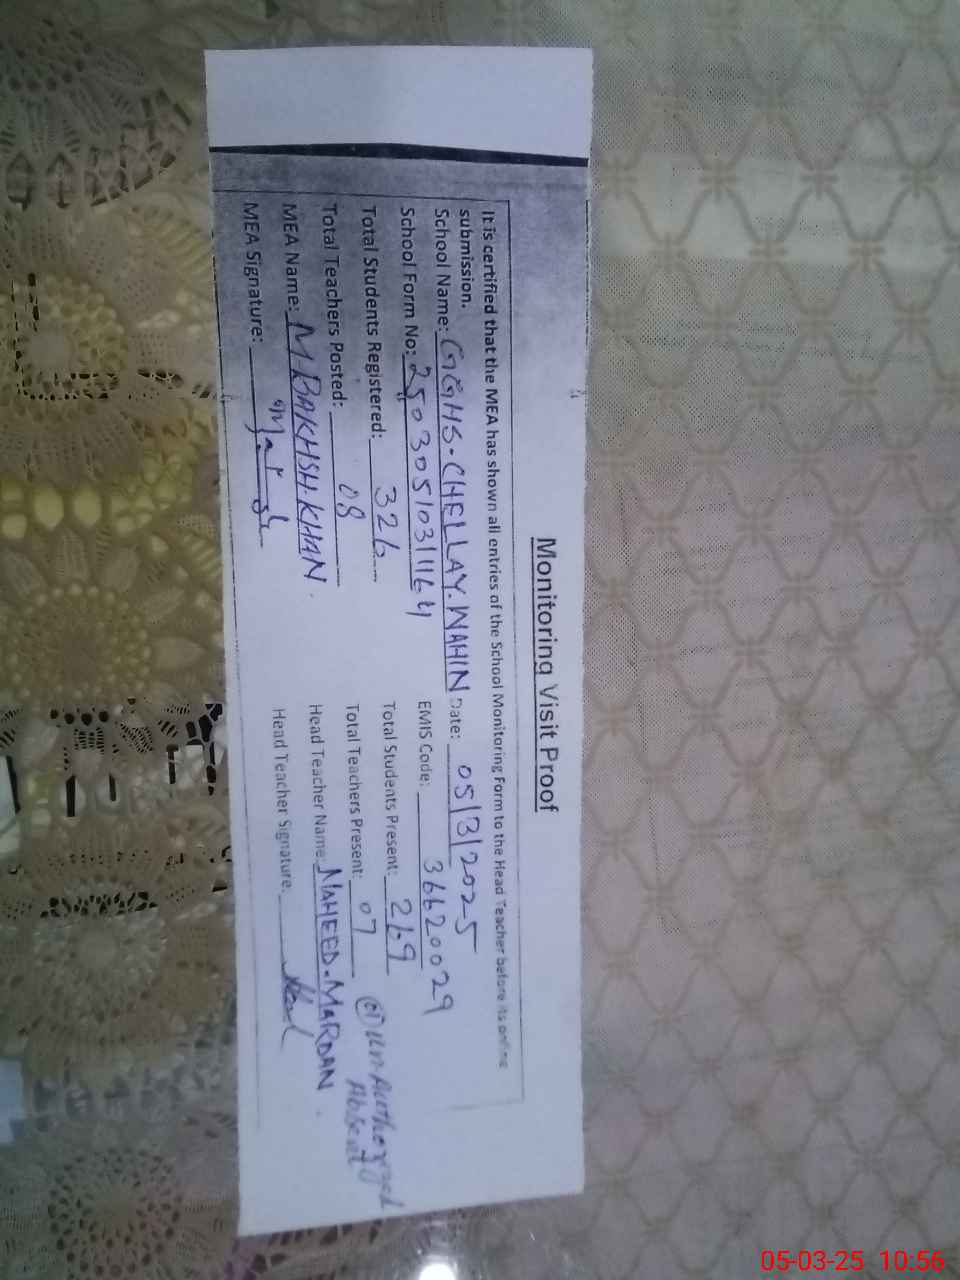 Monitoring Visit Proof
It is certified that the MEA has shown all entries of the School Monitoring Form to the Head Teacher before its online
submission.
School Name: GGHS-CHELLAY.WAHIN Date: 05/3/2025
School Form No: 2503051031164 EMIS Code: 36620029
Total Students Registered: 326 Total Students Present: 269
Total Teachers Posted: 08 Total Teachers Present: 07 01 unAuthorized
Absent
MEA Name: M.BAKHSH.KHAN. Head Teacher Name: NAHEED.MARDAN.
MEA Signature: Head Teacher Signature:
05-03-25 10:56